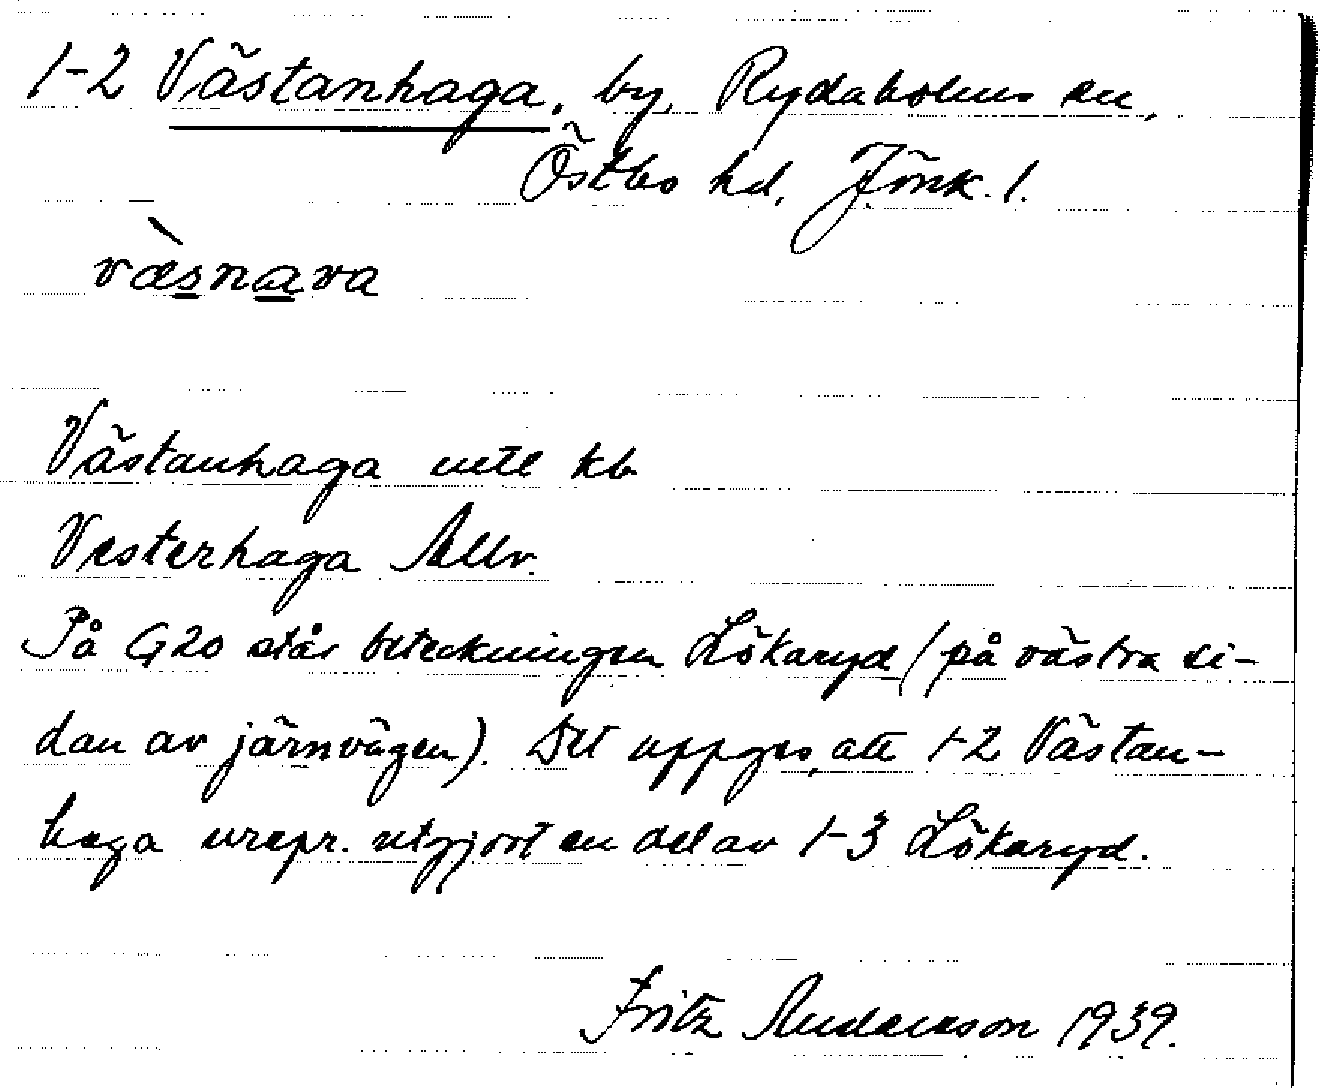 1-2 Västanhaga, by, Rydaholms sn,
Östbo hd, Jönk. l.
væsnava
Västanhaga mtl kb
Vesterhaga Allv.
På G20 står beteckningen Lökaryd (på västra si-
dan av järnvägen). Det uppges, att 1-2 Västan-
haga urspr. utgjort en del av 1-3 Lökaryd.
Fritz Andersson 1939.